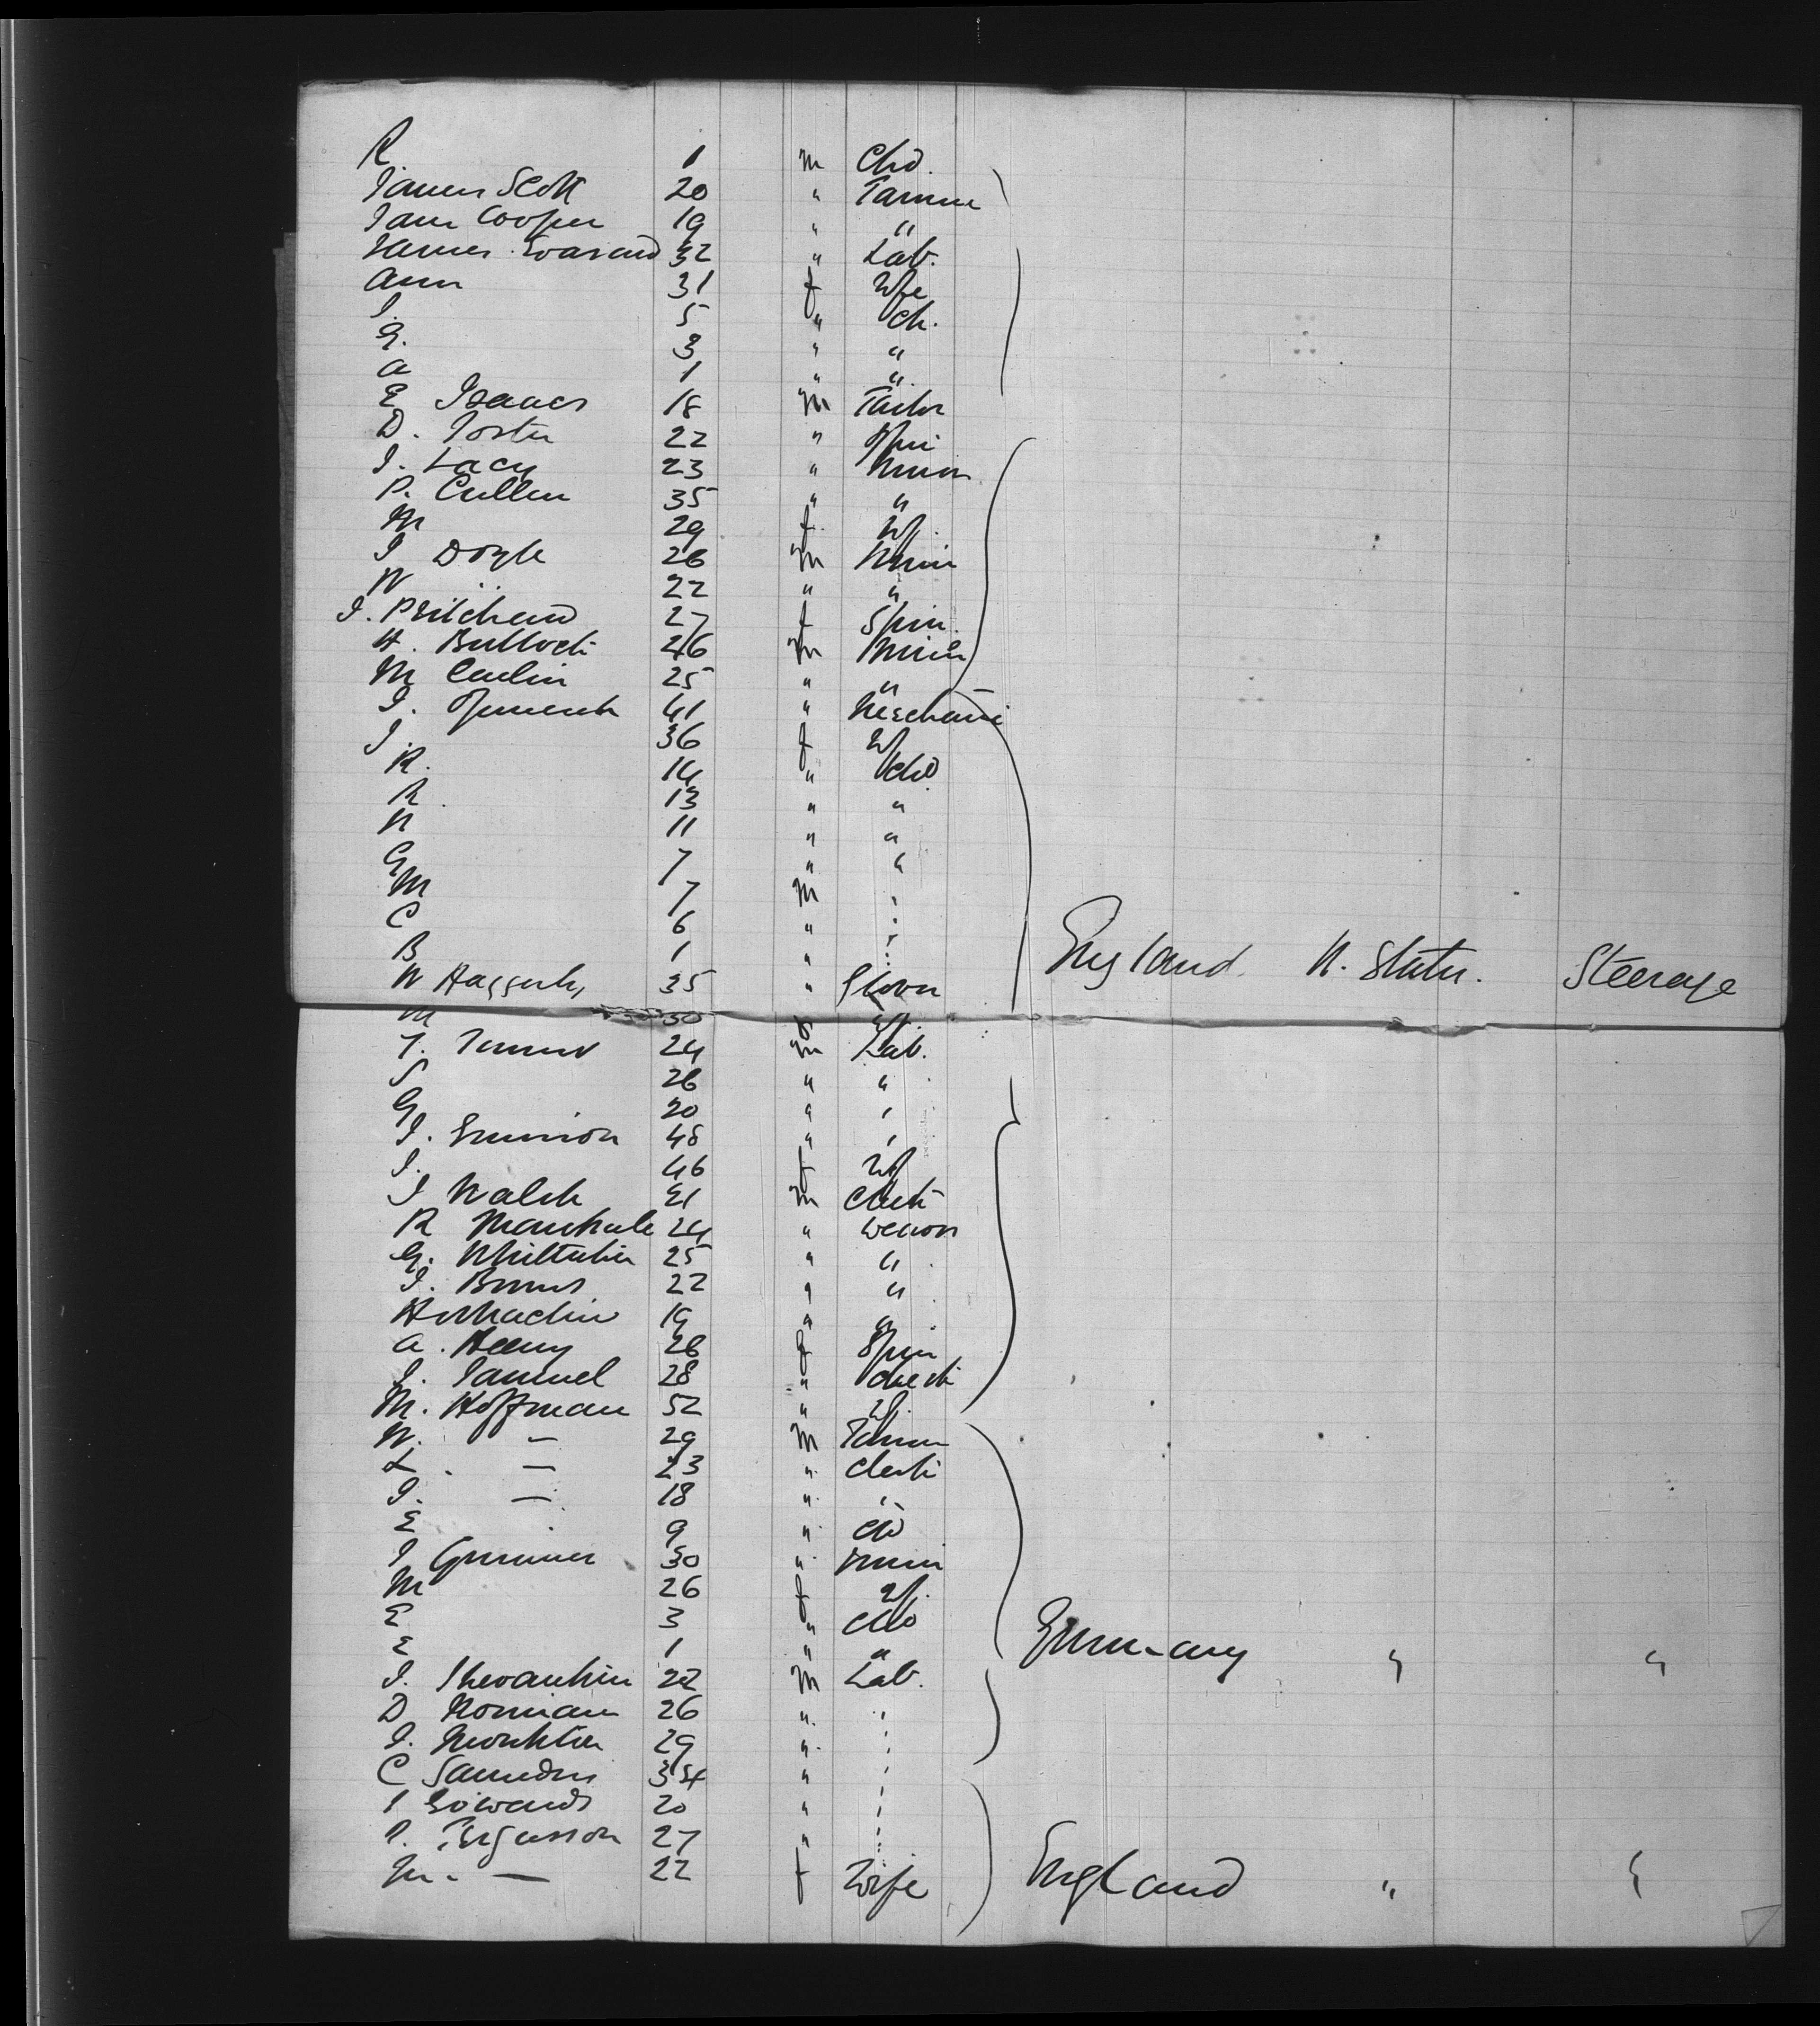 R 1 m Chd.
James Scott 20 " Farmer
Jam Cooper 19 " "
James Edward 32 " Lab.
Ann 31 f Wfe
J. 5 " Ch.
G. 3 " "
A 1 " "
E Isaacs 18 m Tailor
D. Foster 22 " Spin
J. Lacy 23 " Miner
P. Cullen 35 " "
M 29 f. Wf.
J Doyle 26 m Miner
W 22 " "
J. Pritchard 27 f Spin.
H. Bullock 46 m Miner
M Carlin 25 " "
J. 41 " Mechanic
J. 36 f Wf
R. 14 " Chd
R. 13 " "
N 11 " "
G 7 " "
M 7 M "
C 6 " "
B 1 " "
W Haggerty 35 " England U. States. Steerage
M 30 f Wf.
T. Turner 24 m Lab.
S 26 " "
G 20 " "
J. 48 " "
J. 46 f Wf
J Walsh 21 m Clerk
R 24 " Weaver
G. 25 " "
J. Burns 22 " "
19 " "
A. Henry 26 f Spin
J. Samuel 28 " Clerk
M. Hoffman 52 " Wf.
W. — 29 M Farmer
L. — 23 " Clerk
J. — 18 " "
E 9 " Chd
J 30 " Miner
M 26 f Wf.
E 3 " Chd
E 1 " " Germany " "
J. 22 M Lab.
D Norman 26 " "
J. 29 " "
C Saunders 34 " "
J Edwards 20 " "
P. Fergusson 27 " "
M. — 22 f Wife England " "